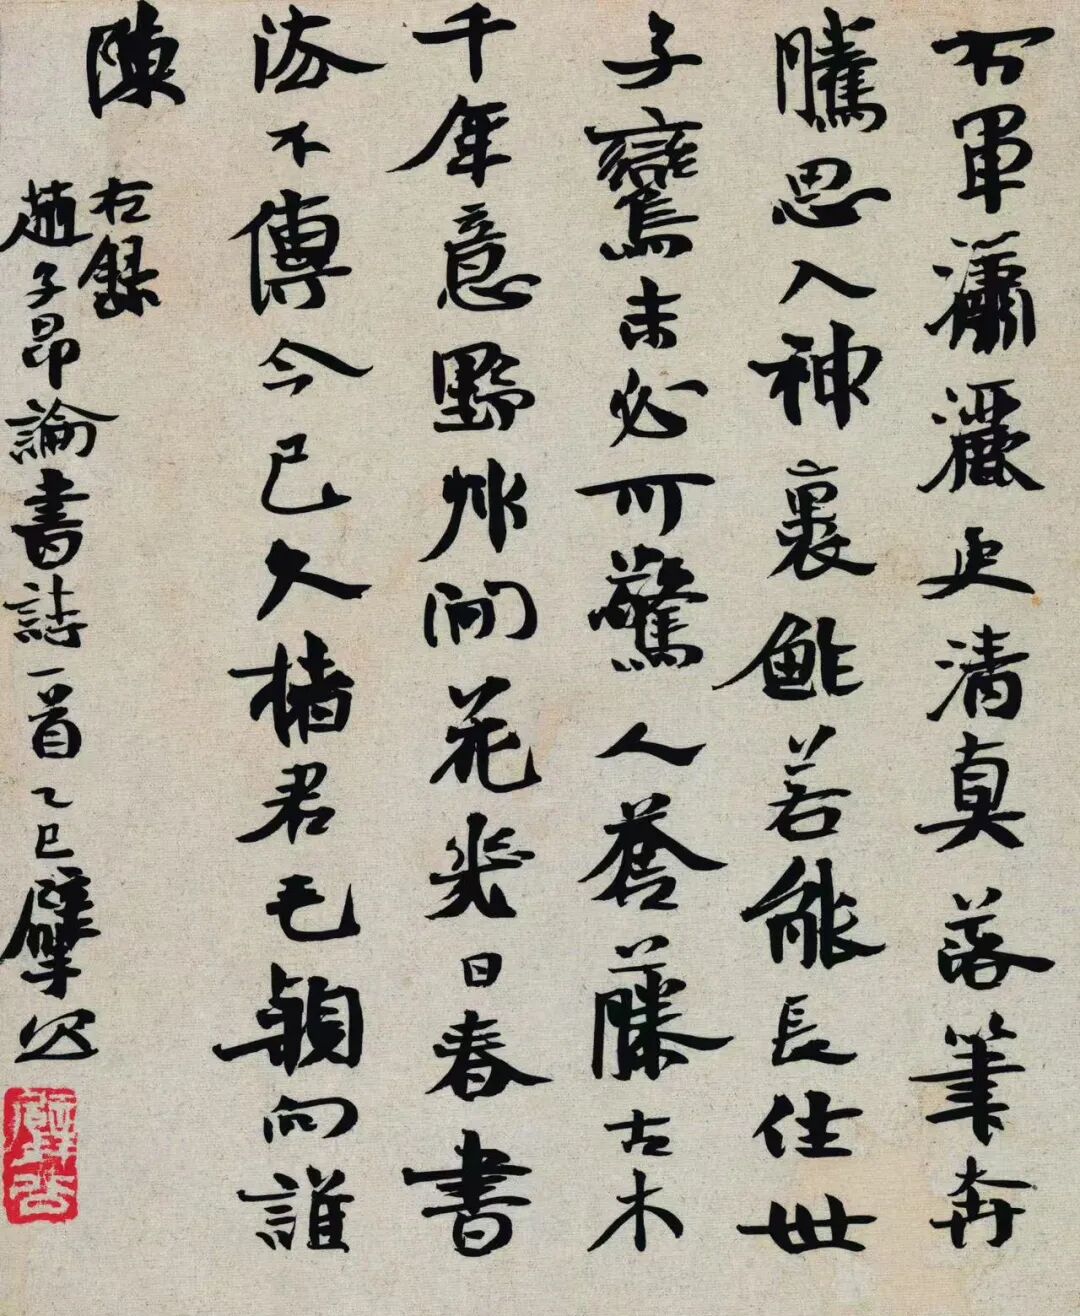 右軍瀟灑更清真落筆奔
騰思入神裏鮓若能長住世
子鸞未必可驚人蒼藤古木
千年意野艸閒花幾日春書
法不傳今已久楮君毛穎向誰
陳
右録
趙子昂論書誌一首乙巳擘公